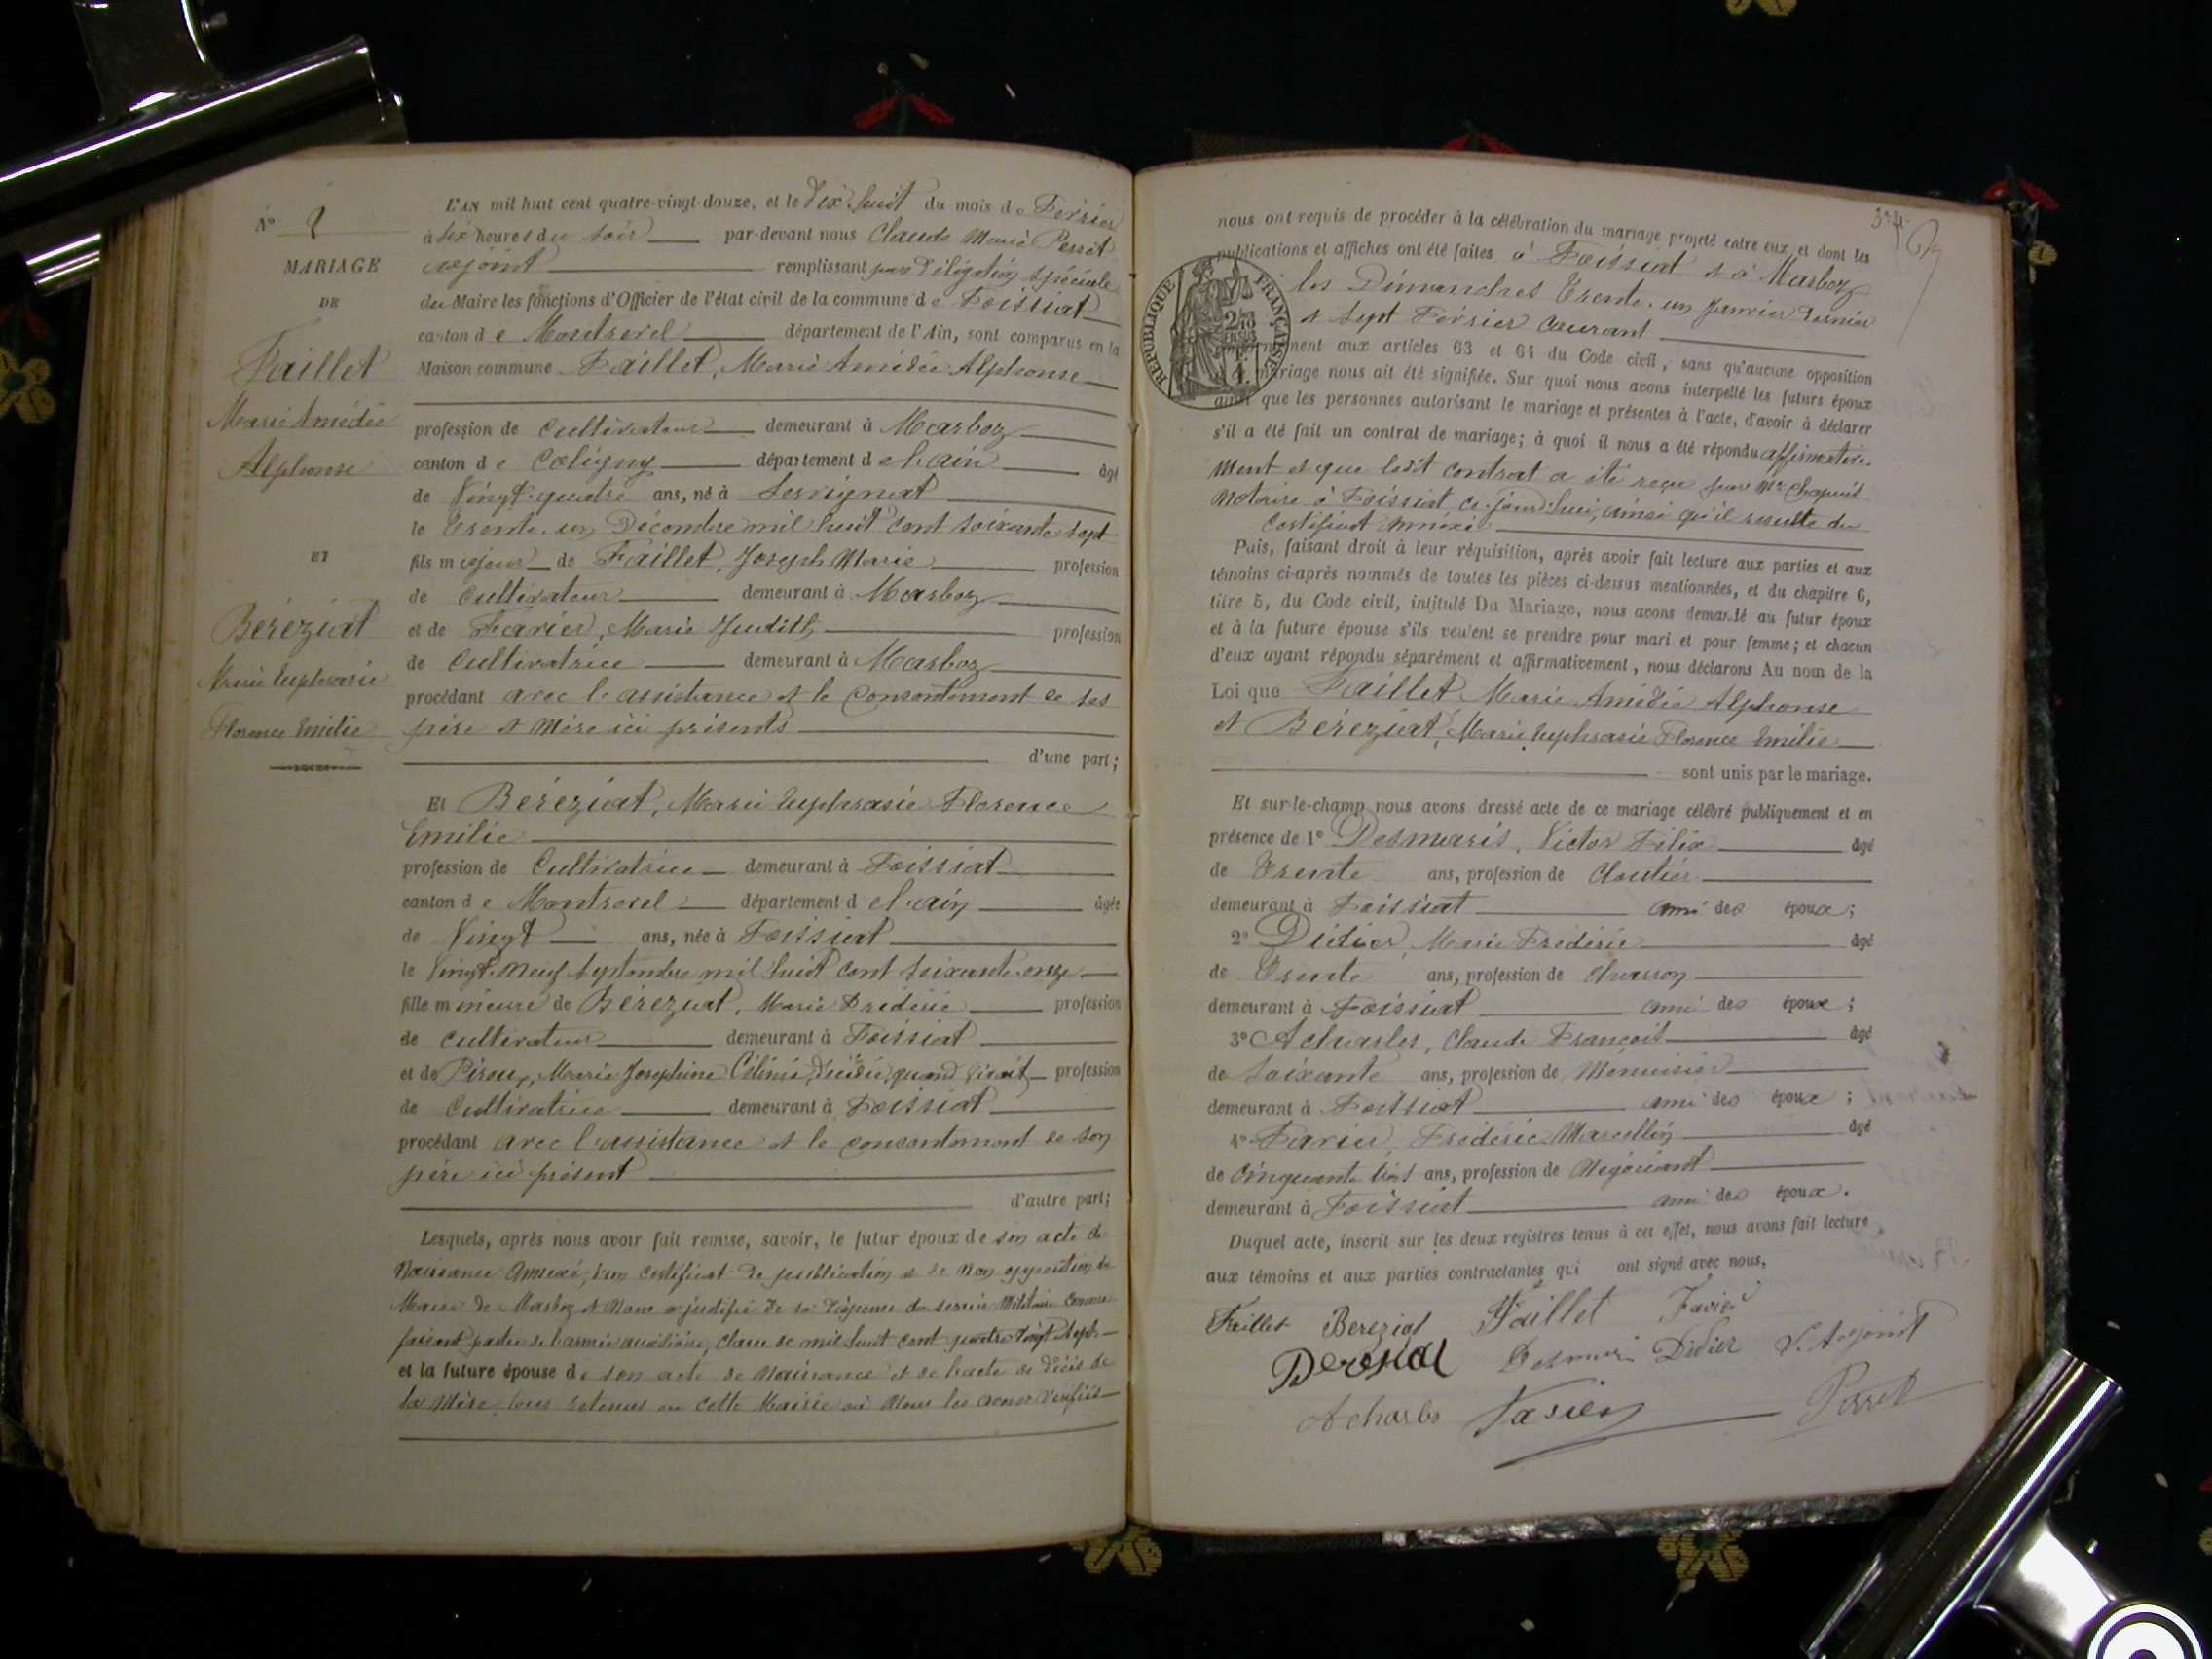 N° 8
MARIAGE
DE
Faillet
Marie Amédée
Alphonse
ET
Béréziat
Marie Euphrasie
Florence Emilie
L'AN mil huit cent quatre-vingt-douze, et le dix-huit du mois de Février
à six heures du soir par-devant nous Claude Marie Perret
adjoint remplissant par délégation spéciale
du Maire les fonctions d'Officier de l'état civil de la commune de Foissiat
canton de Montrevel département de l'Ain, sont comparus en la
Maison commune Faillet, Marie Amédée Alphonse
profession de Cultivateur demeurant à Marboz
canton de Coligny département de l'ain âgé
de Vingt-quatre ans, né à Servignat
le trente un Décembre mil huit cent soixante sept
fils majeur de Faillet, Joseph Marie profession
de Cultivateur demeurant à Marboz
et de Favier, Marie Judith profession
de Cultivatrice demeurant à Marboz
procédant avec l'assistance et le consentement de ses
père et mère ici présents
d'une part;
Et Béréziat, Marie Euphrasie Florence
Emilie
profession de Cultivatrice demeurant à Foissiat
canton de Montrevel département de l'ain âgée
de Vingt ans, née à Foissiat
le Vingt-neuf Septembre mil huit cent soixante-onze
fille mineure de Béréziat, Marie Frédéric profession
de cultivateur demeurant à Foissiat
et de Piroux, Marie Joséphine Célinie, décédée, quand vivait profession
de Cultivatrice demeurant à Foissiat
procédant avec l'assistance et le consentement de son
père ici présent
d'autre part;
Lesquels, après nous avoir fait remise, savoir, le futur époux de son acte de
Naissance annexé, d'un certificat de publication et de non opposition du
Maire de Marboz et nous a justifié de sa dispense du service Militaire comme
faisant partie de l'armée auxiliaire, classe de mil huit cent quatre vingt sept
et la future épouse de son acte de Naissance et de l'acte de décès de
sa Mère, tous retenus en cette Mairie où nous les avons vérifiés
34
nous ont requis de procéder à la célébration du mariage projeté entre eux, et dont les
publications et affiches ont été faites à Foissiat et à Marboz
les Dimanches Trente-un Janvier dernier
et sept Février courant
RÉPUBLIQUE FRANÇAISE
2/10
EN SUS
conformément aux articles 63 et 64 du Code civil, sans qu'aucune opposition
mariage nous ait été signifiée. Sur quoi nous avons interpellé les futurs époux
ainsi que les personnes autorisant le mariage et présentes à l'acte, d'avoir à déclarer
s'il a été fait un contrat de mariage; à quoi il nous a été répondu affirmative-
ment et que ledit contrat a été reçu par Me Chapuit
Notaire à Foissiat, ce jourd'hui, ainsi qu'il résulte du
Certificat annexé
Puis, faisant droit à leur réquisition, après avoir fait lecture aux parties et aux
témoins ci-après nommés de toutes les pièces ci-dessus mentionnées, et du chapitre 6,
titre 5, du Code civil, intitulé Du Mariage, nous avons demandé au futur époux
et à la future épouse s'ils veulent se prendre pour mari et pour femme; et chacun
d'eux ayant répondu séparément et affirmativement, nous déclarons Au nom de la
Loi que Faillet, Marie Amédée Alphonse
et Béréziat, Marie Euphrasie Florence Emilie
sont unis par le mariage.
Et sur-le-champ nous avons dressé acte de ce mariage célébré publiquement et en
présence de 1° Desmaris, Victor Félix âgé
de Trente ans, profession de Cloutier
demeurant à Foissiat ami des époux;
2° Didier, Marie Frédéric âgé
de Trente ans, profession de Charron
demeurant à Foissiat ami des époux;
3° Acharles, Claude François âgé
de Soixante ans, profession de Menuisier
demeurant à Foissiat ami des époux;
4° Favier, Frédéric Marcellin âgé
de Cinquante trois ans, profession de Négociant
demeurant à Foissiat ami des époux.
Duquel acte, inscrit sur les deux registres tenus à cet effet, nous avons fait lecture
aux témoins et aux parties contractantes qui ont signé avec nous.
Faillet Bereziat Faillet Favier
Bereziat Desmaris Didier L'Adjoint
Acharles Favier Perret